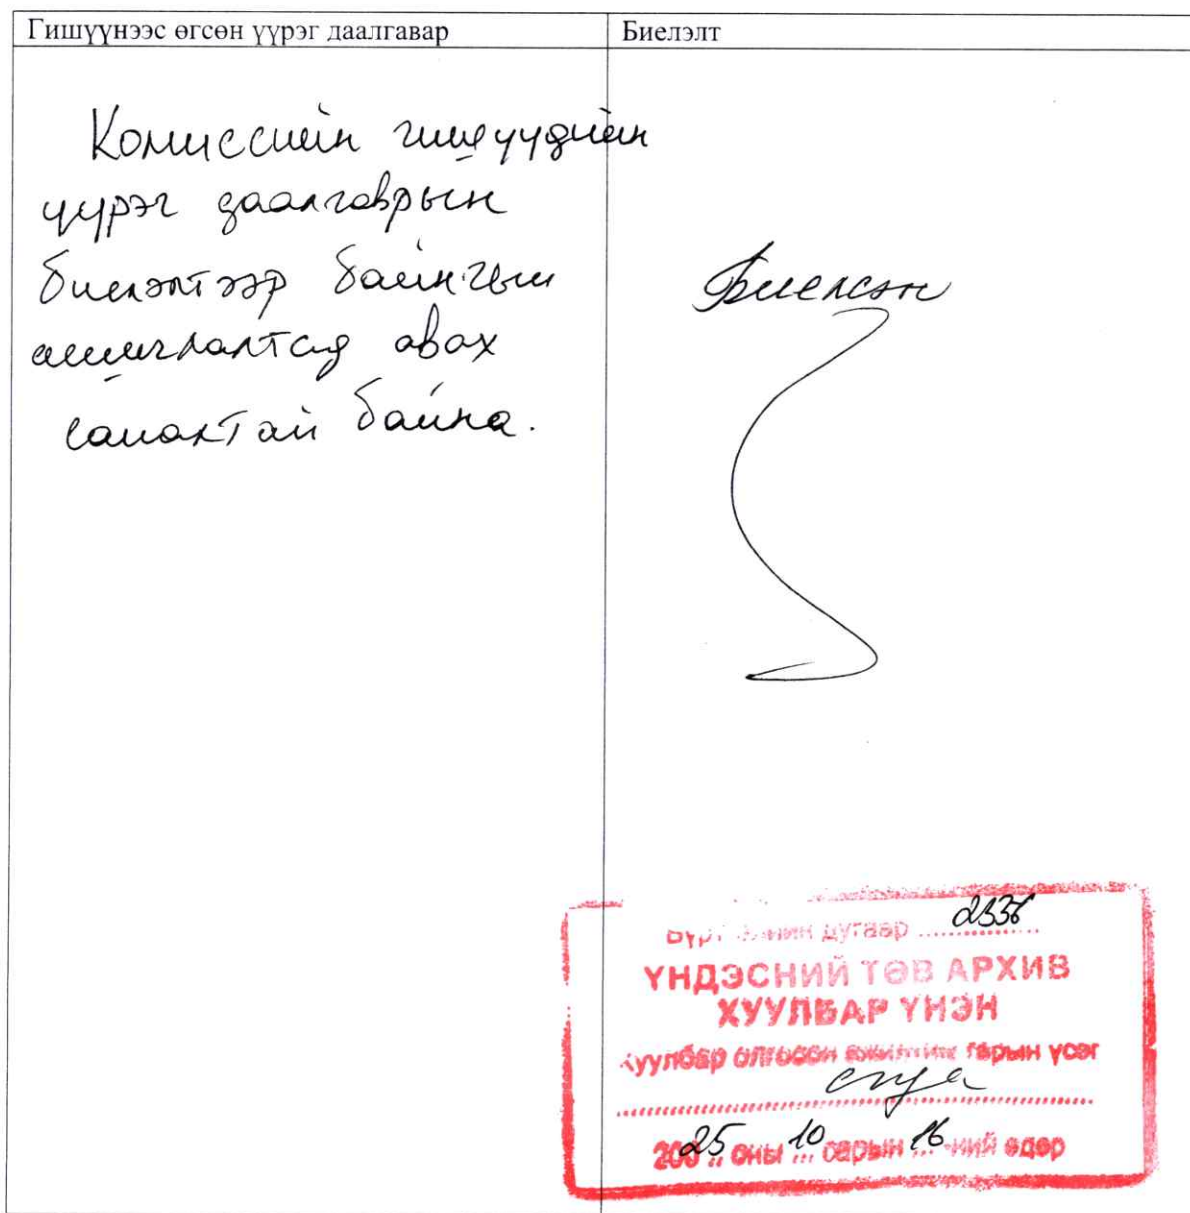 Гишүүнээс өгсөн үүрэг даалгавар
Биелэлт
Комиссийн гишүүдийн
үүрэг даалгаврын
биелэлтээр байнгын
ашиглалтад авах
саналтай байна.
Биелсэн
дугаар 2336
ҮНДЭСНИЙ ТӨВ АРХИВ
ХУУЛБАР ҮНЭН
Хуулбар олгосон ажилтны гарын үсэг
200 25 оны 10 сарын 16 -ний өдөр